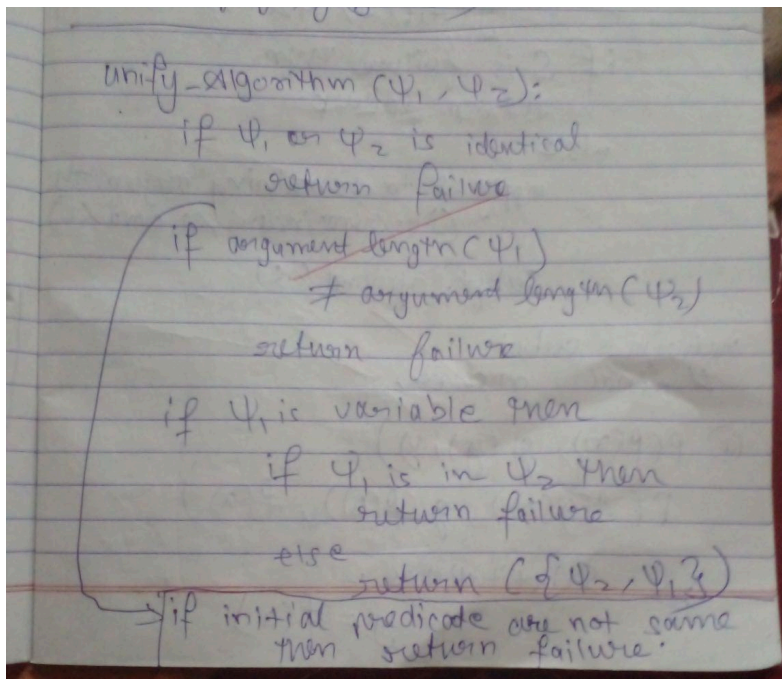 unify-Algorithm (Ψ₁, Ψ₂):
if Ψ₁ or Ψ₂ is identical
return failure
if argument length(Ψ₁)
≠ argument length(Ψ₂)
return failure
if Ψ₁ is variable then
if Ψ₁ is in Ψ₂ then
return failure
else
return ({Ψ₂, Ψ₁})
if initial predicate are not same
then return failure.